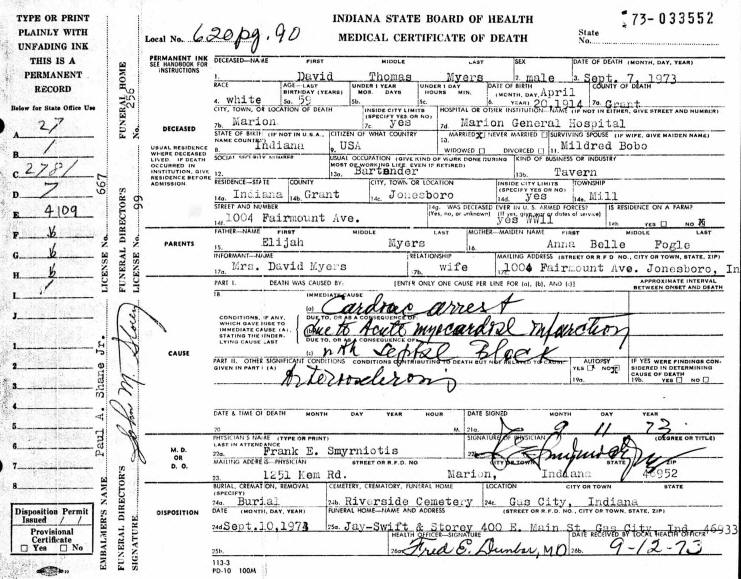 TYPE OR PRINT
PLAINLY WITH
UNFADING INK
THIS IS A
PERMANENT
RECORD
Below for State Office Use
A 27
B 1
C 2781
D 7
E 4109
F
G
H
I
1
2
3
4
5
6
7
8
Disposition Permit
Issued / /
Provisional
Certificate
Yes No
EMBALMER'S NAME Paul A. Shane Jr. LICENSE No. 667
FUNERAL DIRECTOR'S SIGNATURE John M Storey FUNERAL DIRECTOR'S LICENSE No. 99 FUNERAL HOME 256
INDIANA STATE BOARD OF HEALTH
MEDICAL CERTIFICATE OF DEATH
Local No. 620 pg. 90
State No. 73-033552
PERMANENT INK
SEE HANDBOOK FOR
INSTRUCTIONS
DECEASED—NAME FIRST MIDDLE LAST SEX DATE OF DEATH (MONTH, DAY, YEAR)
1. David Thomas Myers 2. male 3. Sept. 7, 1973
RACE AGE—LAST BIRTHDAY (YEARS) UNDER 1 YEAR MOS. DAYS UNDER 1 DAY HOURS MIN. DATE OF BIRTH (MONTH, DAY, YEAR) COUNTY OF DEATH
4. white 5a. 59 5b. 5c. 6. April 20, 1914 7a. Grant
CITY, TOWN, OR LOCATION OF DEATH INSIDE CITY LIMITS (SPECIFY YES OR NO) HOSPITAL OR OTHER INSTITUTION—NAME (IF NOT IN EITHER, GIVE STREET AND NUMBER)
7b. Marion 7c. yes 7d. Marion General Hospital
DECEASED
USUAL RESIDENCE
WHERE DECEASED
LIVED. IF DEATH
OCCURRED IN
INSTITUTION, GIVE
RESIDENCE BEFORE
ADMISSION
STATE OF BIRTH (IF NOT IN U.S.A., NAME COUNTRY) CITIZEN OF WHAT COUNTRY MARRIED X NEVER MARRIED SURVIVING SPOUSE (IF WIFE, GIVE MAIDEN NAME)
8. Indiana 9. USA 10. WIDOWED DIVORCED 11. Mildred Bobo
SOCIAL SECURITY NUMBER USUAL OCCUPATION (GIVE KIND OF WORK DONE DURING MOST OF WORKING LIFE, EVEN IF RETIRED) KIND OF BUSINESS OR INDUSTRY
12. 13a. Bartender 13b. Tavern
RESIDENCE—STATE COUNTY CITY, TOWN OR LOCATION INSIDE CITY LIMITS (SPECIFY YES OR NO) TOWNSHIP
14a. Indiana 14b. Grant 14c. Jonesboro 14d. yes 14e. Mill
STREET AND NUMBER 14g. WAS DECEASED EVER IN U.S. ARMED FORCES? (Yes, no, or unknown) (If yes, give war or dates of service) IS RESIDENCE ON A FARM?
14f. 1004 Fairmount Ave. yes WWll 14h. YES NO X
PARENTS
FATHER—NAME FIRST MIDDLE LAST MOTHER—MAIDEN NAME FIRST MIDDLE LAST
15. Elijah Myers 16. Anna Belle Fogle
INFORMANT—NAME RELATIONSHIP MAILING ADDRESS (STREET OR R F D NO., CITY OR TOWN, STATE, ZIP)
17a. Mrs. David Myers 17b. wife 17c. 1004 Fairmount Ave. Jonesboro, In
PART I. DEATH WAS CAUSED BY: [ENTER ONLY ONE CAUSE PER LINE FOR (a), (b), AND (c)] APPROXIMATE INTERVAL BETWEEN ONSET AND DEATH
18 IMMEDIATE CAUSE
(a) Cardiac arrest
CAUSE
CONDITIONS, IF ANY,
WHICH GAVE RISE TO
IMMEDIATE CAUSE (a),
STATING THE UNDER-
LYING CAUSE LAST
DUE TO, OR AS A CONSEQUENCE OF:
(b) Due to Acute myocardial infarction
DUE TO, OR AS A CONSEQUENCE OF:
(c) with Septal Block
PART II. OTHER SIGNIFICANT CONDITIONS CONDITIONS CONTRIBUTING TO DEATH BUT NOT RELATED TO CAUSE GIVEN IN PART I (A) AUTOPSY YES NO IF YES WERE FINDINGS CONSIDERED IN DETERMINING CAUSE OF DEATH
Arteriosclerosis 19a. 19b. YES NO
DATE & TIME OF DEATH MONTH DAY YEAR HOUR DATE SIGNED MONTH DAY YEAR
20. M. 21a. 9 11 73
M. D.
OR
D. O.
PHYSICIAN'S NAME (TYPE OR PRINT) LAST IN ATTENDANCE SIGNATURE OF PHYSICIAN (DEGREE OR TITLE)
22a. Frank E. Smyrniotis 22b.
MAILING ADDRESS—PHYSICIAN STREET OR R.F.D. NO CITY OR TOWN STATE ZIP
23. 1251 Kem Rd. Marion, Indiana 46952
DISPOSITION
BURIAL, CREMATION, REMOVAL (SPECIFY) CEMETERY, CREMATORY, FUNERAL HOME LOCATION CITY OR TOWN STATE
24a. Burial 24b. Riverside Cemetery 24c. Gas City, Indiana
DATE (MONTH, DAY, YEAR) FUNERAL HOME—NAME AND ADDRESS (STREET OR R.F.D. NO., CITY OR TOWN, STATE, ZIP)
24d. Sept.10,1973 25a. Jay-Swift & Storey 400 E. Main St. Gas City, Ind. 46933
HEALTH OFFICER—SIGNATURE DATE RECEIVED BY LOCAL HEALTH OFFICER
25b. 26a. Fred E. Dunbar, MD 26b. 9-12-73
113-3
PD-10 100M